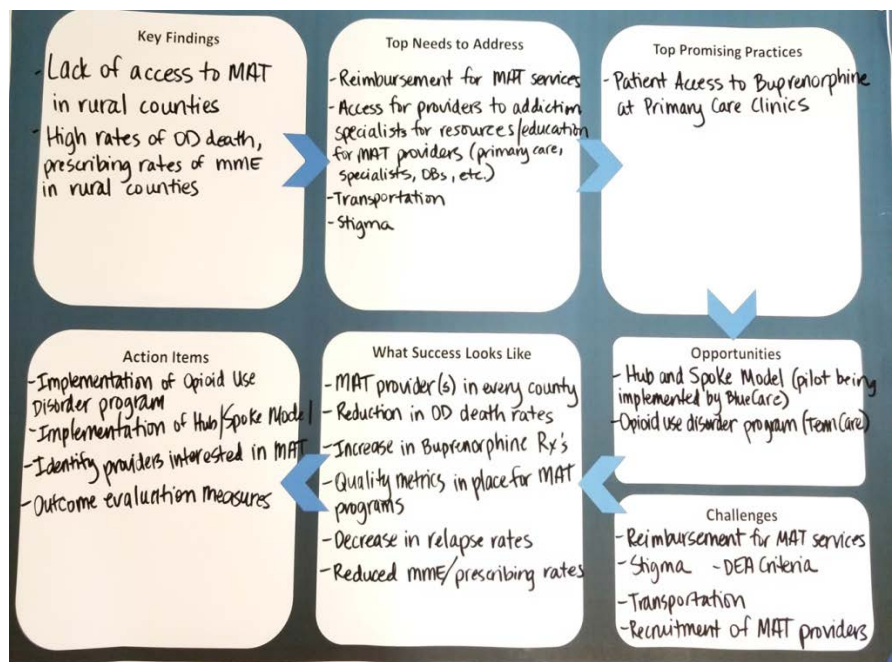 Key Findings
- Lack of access to MAT
in rural counties
- High rates of OD death,
prescribing rates of mmE
in rural counties
Top Needs to Address
- Reimbursement for MAT services
- Access for providers to addiction
specialists for resources/education
for MAT providers (primary care,
specialists, OBs, etc.)
- Transportation
- Stigma
Top Promising Practices
- Patient Access to Buprenorphine
at Primary Care Clinics
Opportunities
- Hub and Spoke Model (pilot being
implemented by BlueCare)
- Opioid use disorder program (TennCare)
Challenges
- Reimbursement for MAT services
- Stigma - DEA Criteria
- Transportation
- Recruitment of MAT providers
What Success Looks Like
- MAT provider(s) in every county
- Reduction in OD death rates
- Increase in Buprenorphine Rx's
- Quality metrics in place for MAT
programs
- Decrease in relapse rates
- Reduced mmE/prescribing rates
Action Items
- Implementation of Opioid Use
Disorder program
- Implementation of Hub/Spoke Model
- Identify providers interested in MAT
- Outcome evaluation measures